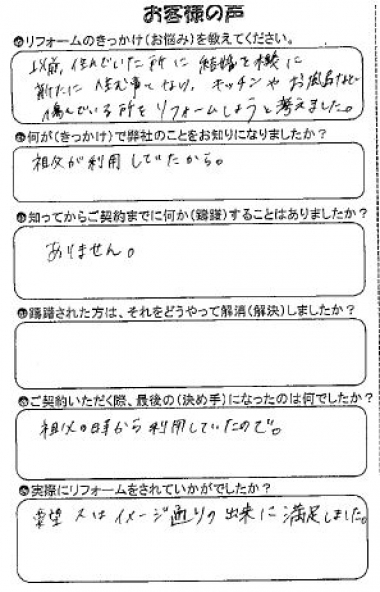 お客様の声
リフォームのきっかけ(お悩み)を教えてください。
以前、住んでいた所に結婚を機に
新たに住む事になり、キッチンやお風呂など
傷んでいる所をリフォームしようと考えました。
何が(きっかけ)で弊社のことをお知りになりましたか?
祖父が利用していたから。
知ってからご契約までに何か(躊躇)することはありましたか?
ありません。
躊躇された方は、それをどうやって解消(解決)しましたか?
ご契約いただく際、最後の(決め手)になったのは何でしたか?
祖父の時から利用していたので。
実際にリフォームをされていかがでしたか?
要望又はイメージ通りの出来に満足しました。